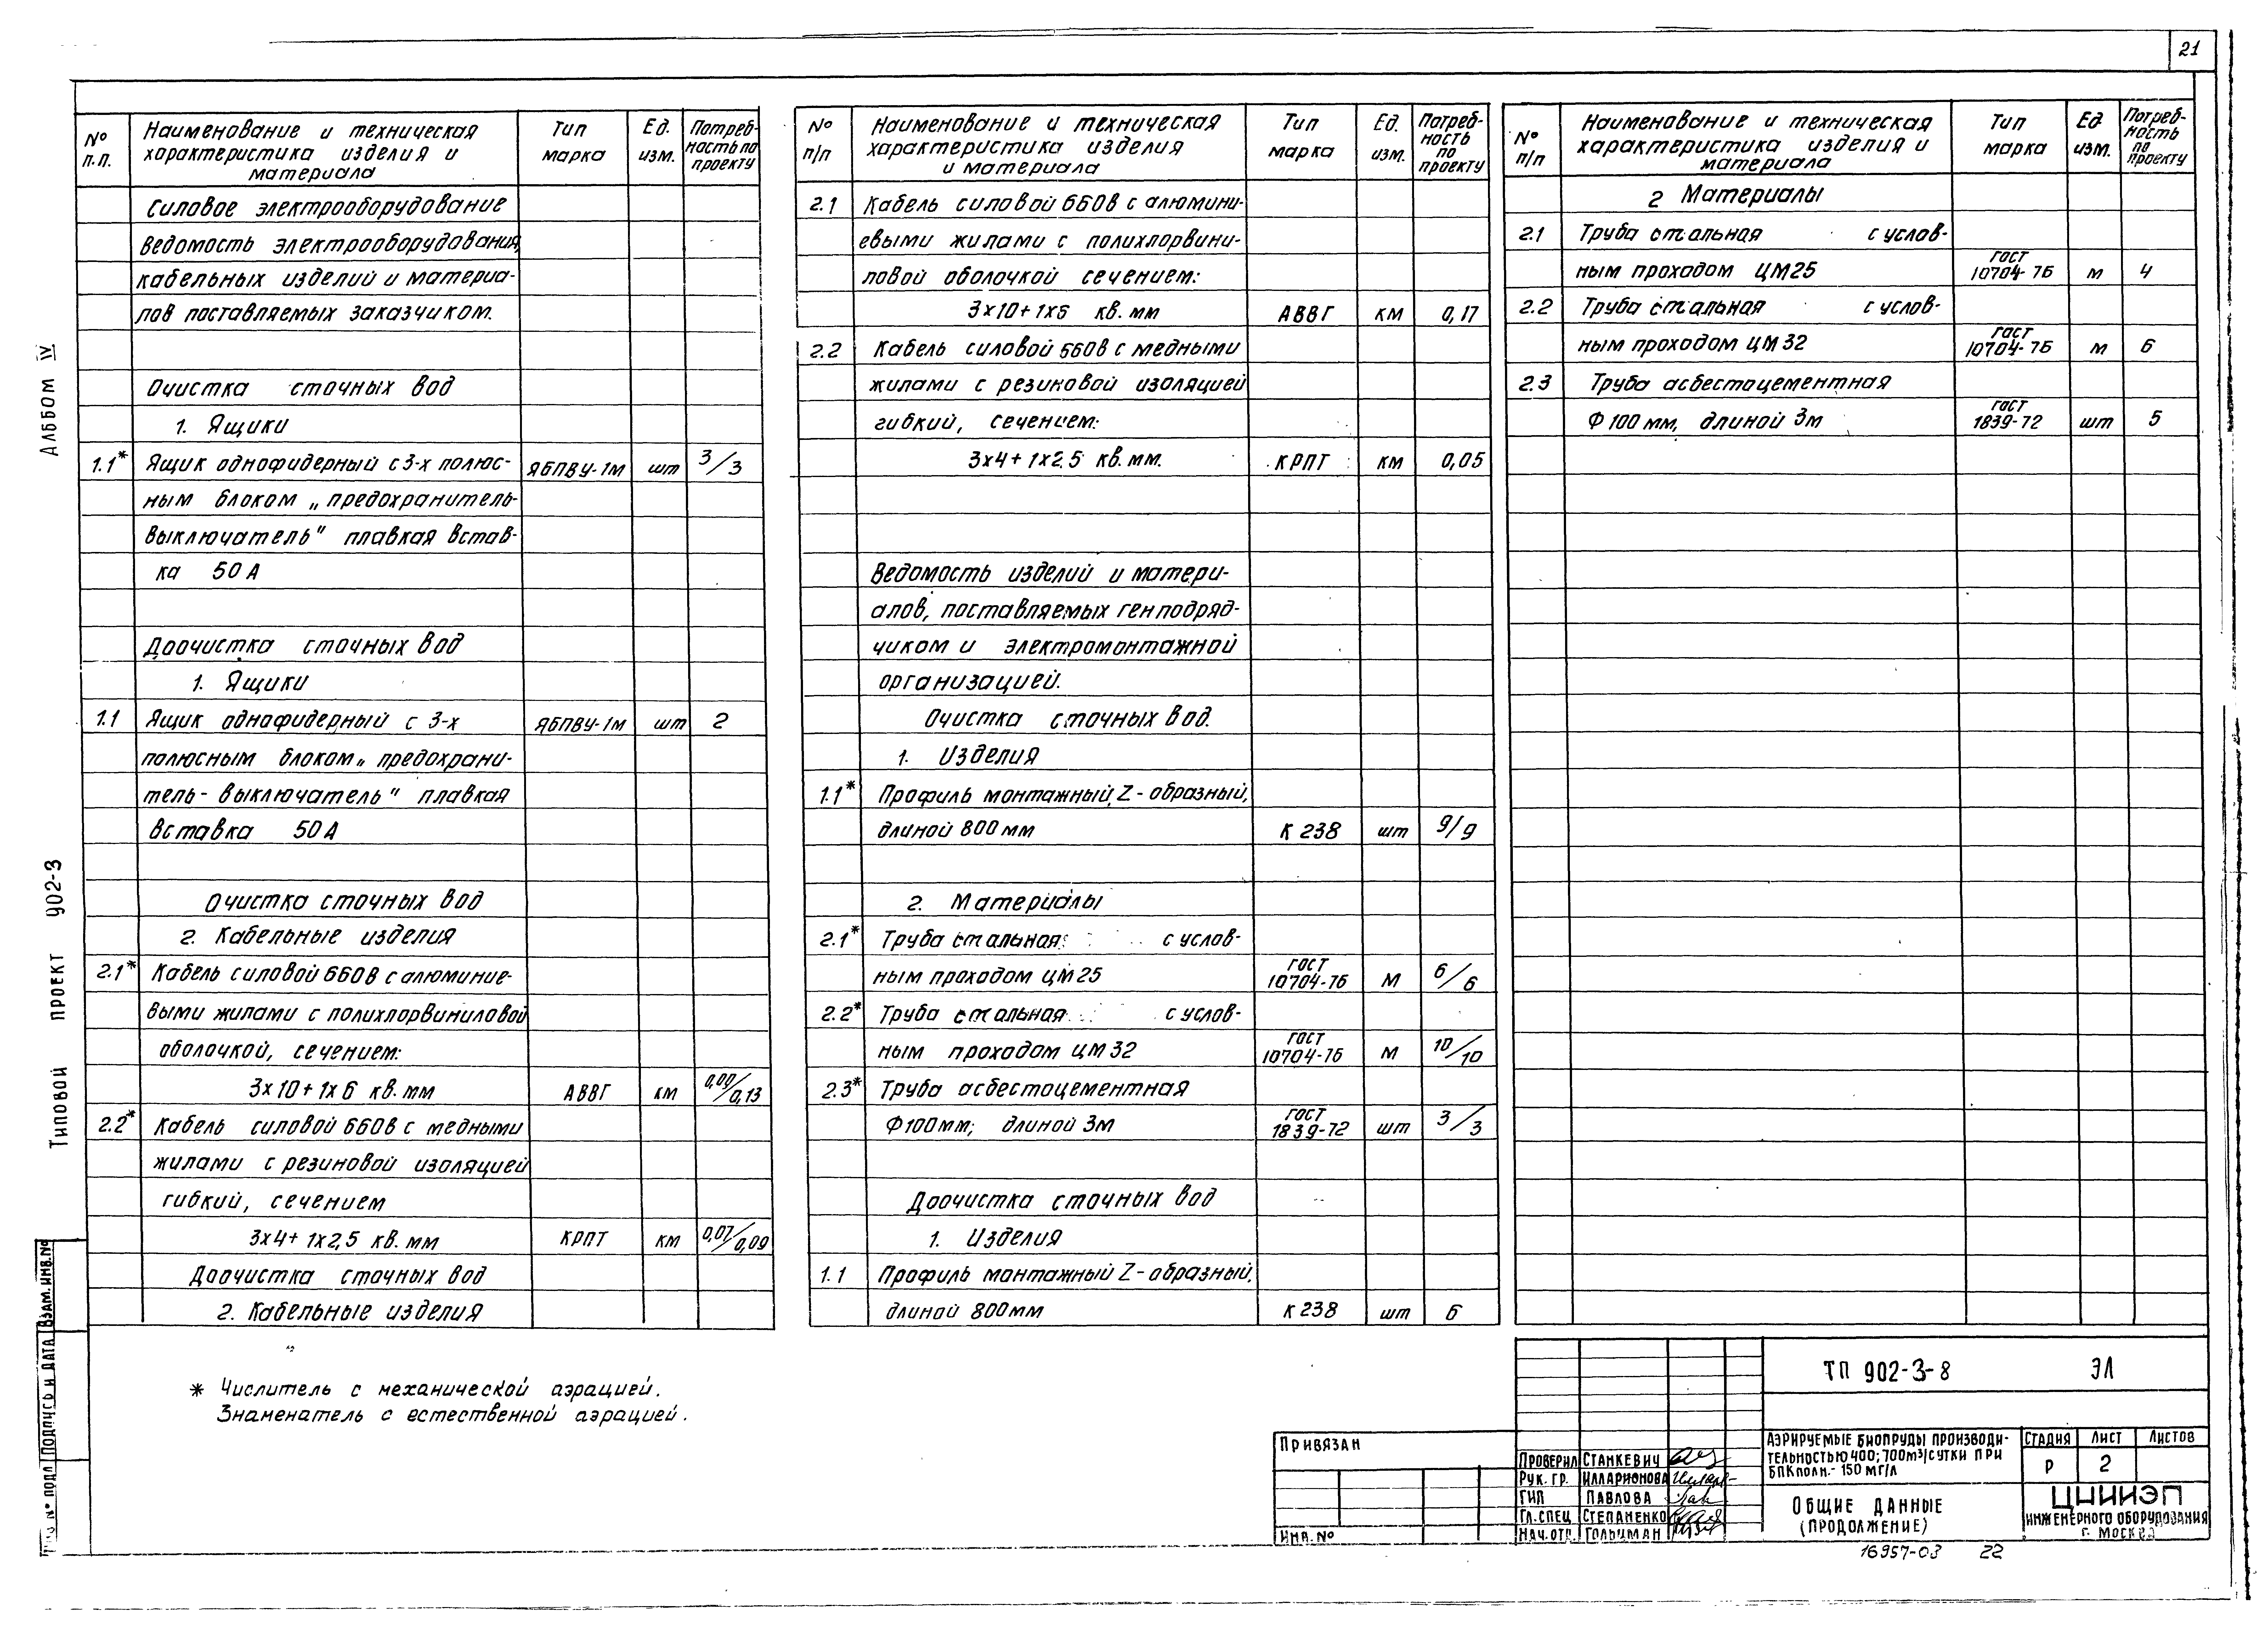 21
Альбом IV
Типовой проект 902-3
№ п.п. Наименование и техническая характеристика изделия и материала Тип марка Ед. изм. Потребность по проекту
Силовое электрооборудование
Ведомость электрооборудования,
кабельных изделий и материа-
лов поставляемых заказчиком.
Очистка сточных вод
1. Ящики
1.1* Ящик однофидерный с 3-х полюс- ЯБПВУ-1м шт 3/3
ным блоком „предохранитель-
выключатель" плавкая встав-
ка 50А
Доочистка сточных вод
1. Ящики
1.1 Ящик однофидерный с 3-х ЯБПВУ-1м шт 2
полюсным блоком „предохрани-
тель-выключатель" плавкая
вставка 50А
Очистка сточных вод
2. Кабельные изделия
2.1* Кабель силовой 660в с алюминие-
выми жилами с полихлорвиниловой
оболочкой, сечением:
3х10+1х6 кв.мм АВВГ км 0,09/0,13
2.2* Кабель силовой 660в с медными
жилами с резиновой изоляцией
гибкий, сечением
3х4+1х2,5 кв.мм КРПТ км 0,07/0,09
Доочистка сточных вод
2. Кабельные изделия
* Числитель с механической аэрацией.
Знаменатель с естественной аэрацией.
№ п/п Наименование и техническая характеристика изделия и материала Тип марка Ед. изм. Потребность по проекту
2.1 Кабель силовой 660в с алюмини-
евыми жилами с полихлорвини-
ловой оболочкой сечением:
3х10+1х6 кв.мм АВВГ км 0,17
2.2 Кабель силовой 660в с медными
жилами с резиновой изоляцией
гибкий, сечением:
3х4+1х2,5 кв.мм. КРПТ км 0,05
Ведомость изделий и матери-
алов, поставляемых генподряд-
чиком и электромонтажной
организацией.
Очистка сточных вод.
1. Изделия
1.1* Профиль монтажный, Z-образный,
длиной 800мм К 238 шт 9/9
2. Материалы
2.1* Труба стальная с услов-
ным проходом цм25 ГОСТ 10704-76 м 6/6
2.2* Труба стальная с услов-
ным проходом цм32 ГОСТ 10704-76 м 10/10
2.3* Труба асбестоцементная
Ф100мм; длиной 3м ГОСТ 1839-72 шт 3/3
Доочистка сточных вод
1. Изделия
1.1 Профиль монтажный Z-образный,
длиной 800мм К 238 шт 6
№ п/п Наименование и техническая характеристика изделия и материала Тип марка Ед изм. Потребность по проекту
2 Материалы
2.1 Труба стальная с услов-
ным проходом цм25 ГОСТ 10704-76 м 4
2.2 Труба стальная с услов-
ным проходом цм32 ГОСТ 10704-76 м 6
2.3 Труба асбестоцементная
Ф100мм, длиной 3м ГОСТ 1839-72 шт 5
Взам. инв. №
Подпись и дата
№ подл
Привязан
Инв. №
Проверил Станкевич
Рук. гр. Илларионова
ГИП Павлова
Гл. спец Степаненко
Нач. отд. Гольцман
ТП 902-3-8 ЭЛ
Аэрируемые биопруды производи-
тельностью 400; 700м³/сутки при
БПКполн.- 150 мг/л
Стадия Лист Листов
Р 2
Общие данные
(продолжение)
ЦНИИЭП
инженерного оборудования
г. Москва
16957-03 22